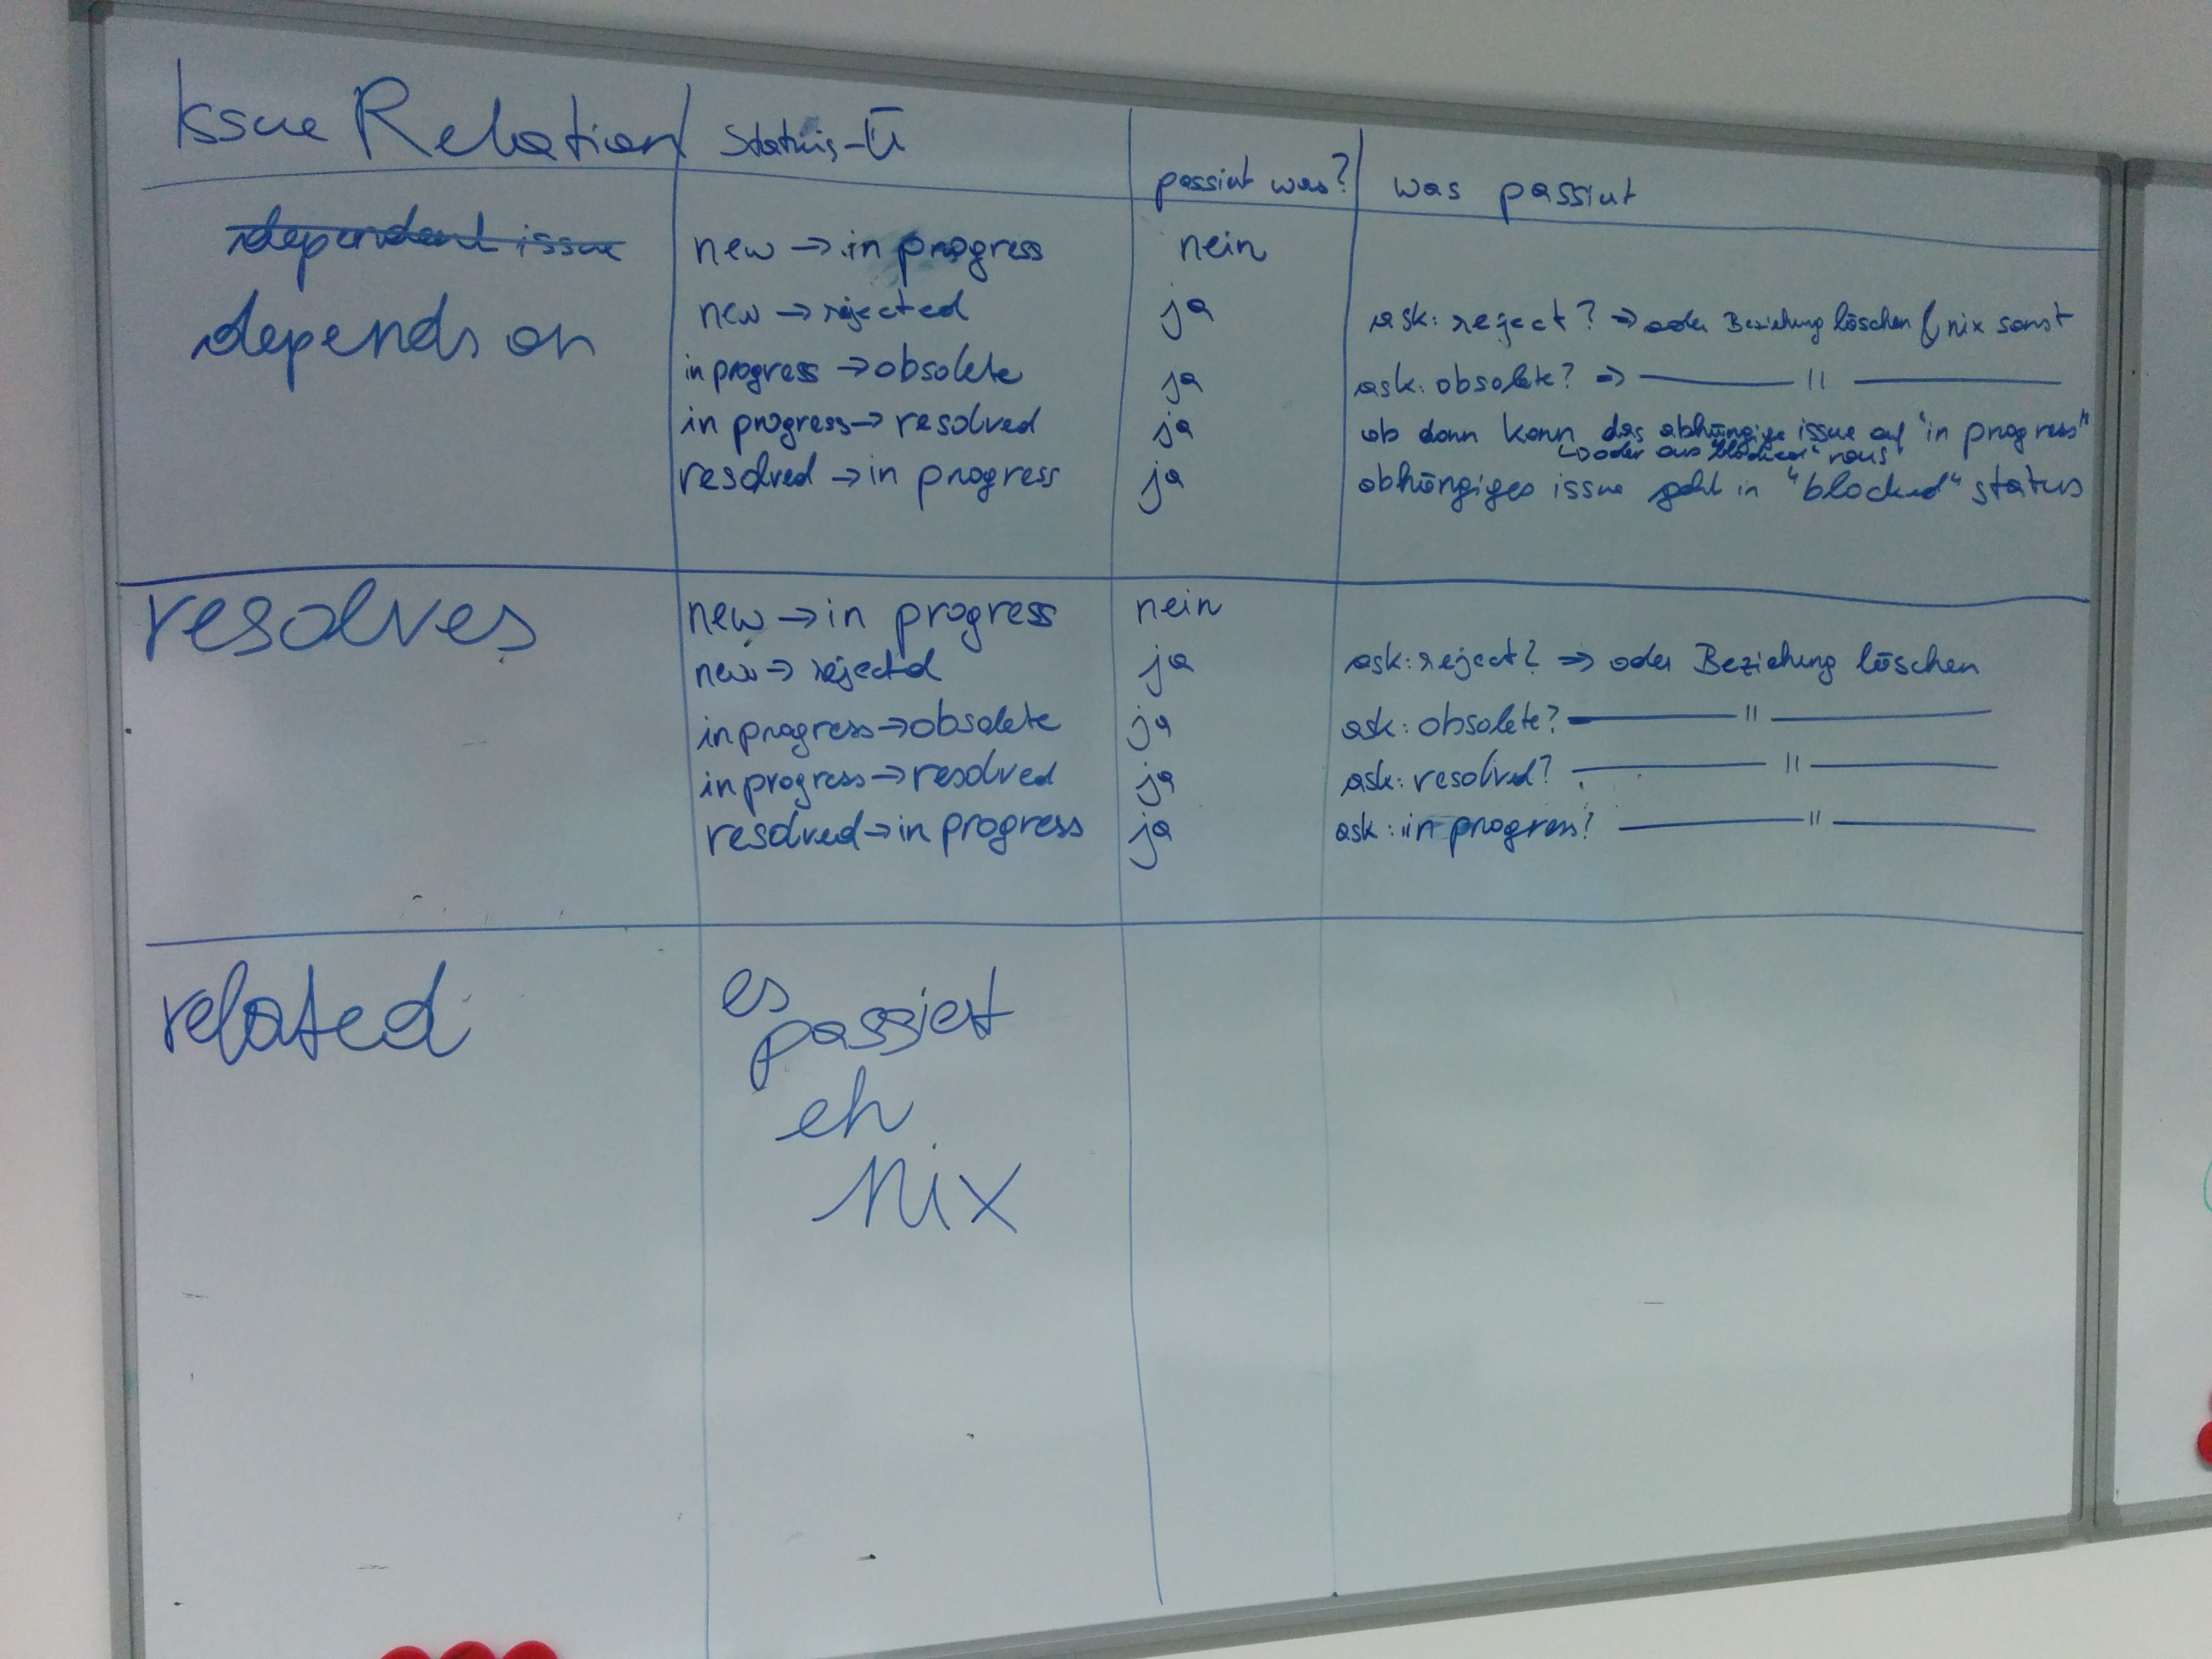 Issue Relation Status-Ü passiert was? was passiert
dependent issue
depends on
new → in progress nein
new → rejected ja ask: reject? ⇒ oder Beziehung löschen & nix sonst
in progress → obsolete ja ask: obsolete? ⇒ — " —
in progress → resolved ja ab dann kann das abhängige issue auf "in progress"
↳ oder aus "blocked" raus
resolved → in progress ja abhängiges issue geht in "blocked" status
resolves
new → in progress nein
new → rejected ja ask: reject? ⇒ oder Beziehung löschen
in progress → obsolete ja ask: obsolete? — " —
in progress → resolved ja ask: resolved? — " —
resolved → in progress ja ask: in progress? — " —
related
es
passiert
eh
nix